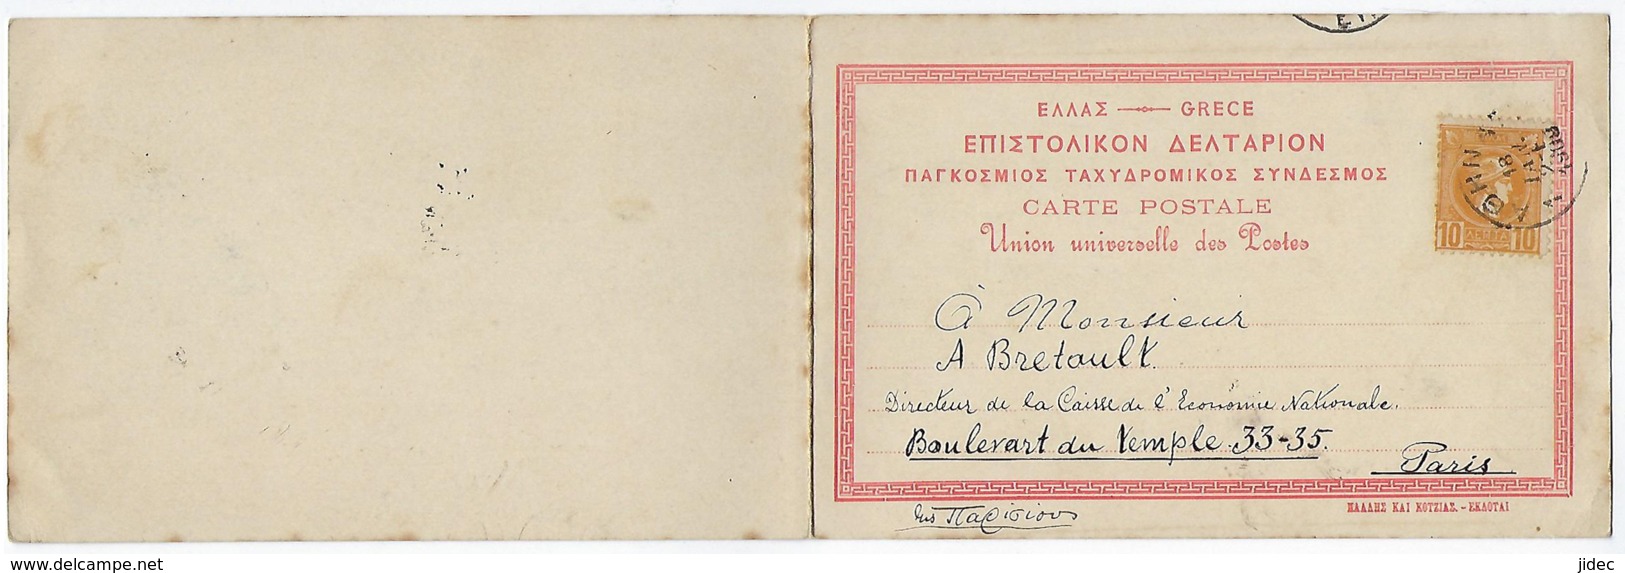 ΕΛΛΑΣ GRECE
ΕΠΙΣΤΟΛΙΚΟΝ ΔΕΛΤΑΡΙΟΝ
ΠΑΓΚΟΣΜΙΟΣ ΤΑΧΥΔΡΟΜΙΚΟΣ ΣΥΝΔΕΣΜΟΣ
CARTE POSTALE
Union universelle des Postes
10 ΛΕΠΤΑ 10
À Monsieur
A Bretault
Directeur de la Caisse de l'Economie Nationale.
Boulevart du Temple 33-35.
Paris
εις Παρισίους
ΠΑΛΛΗΣ ΚΑΙ ΚΟΤΖΙΑΣ. - ΕΚΔΟΤΑΙ
www.delcampe.net
jidec